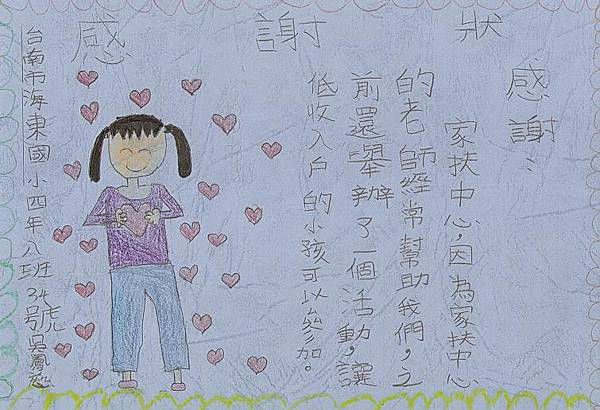 感謝狀
感謝：
家扶中心，因為家扶中心
的老師經常幫助我們，之
前還舉辦了一個活動，讓
低收入戶的小孩可以參加。
台南市海東國小四年八班34號吳鳳